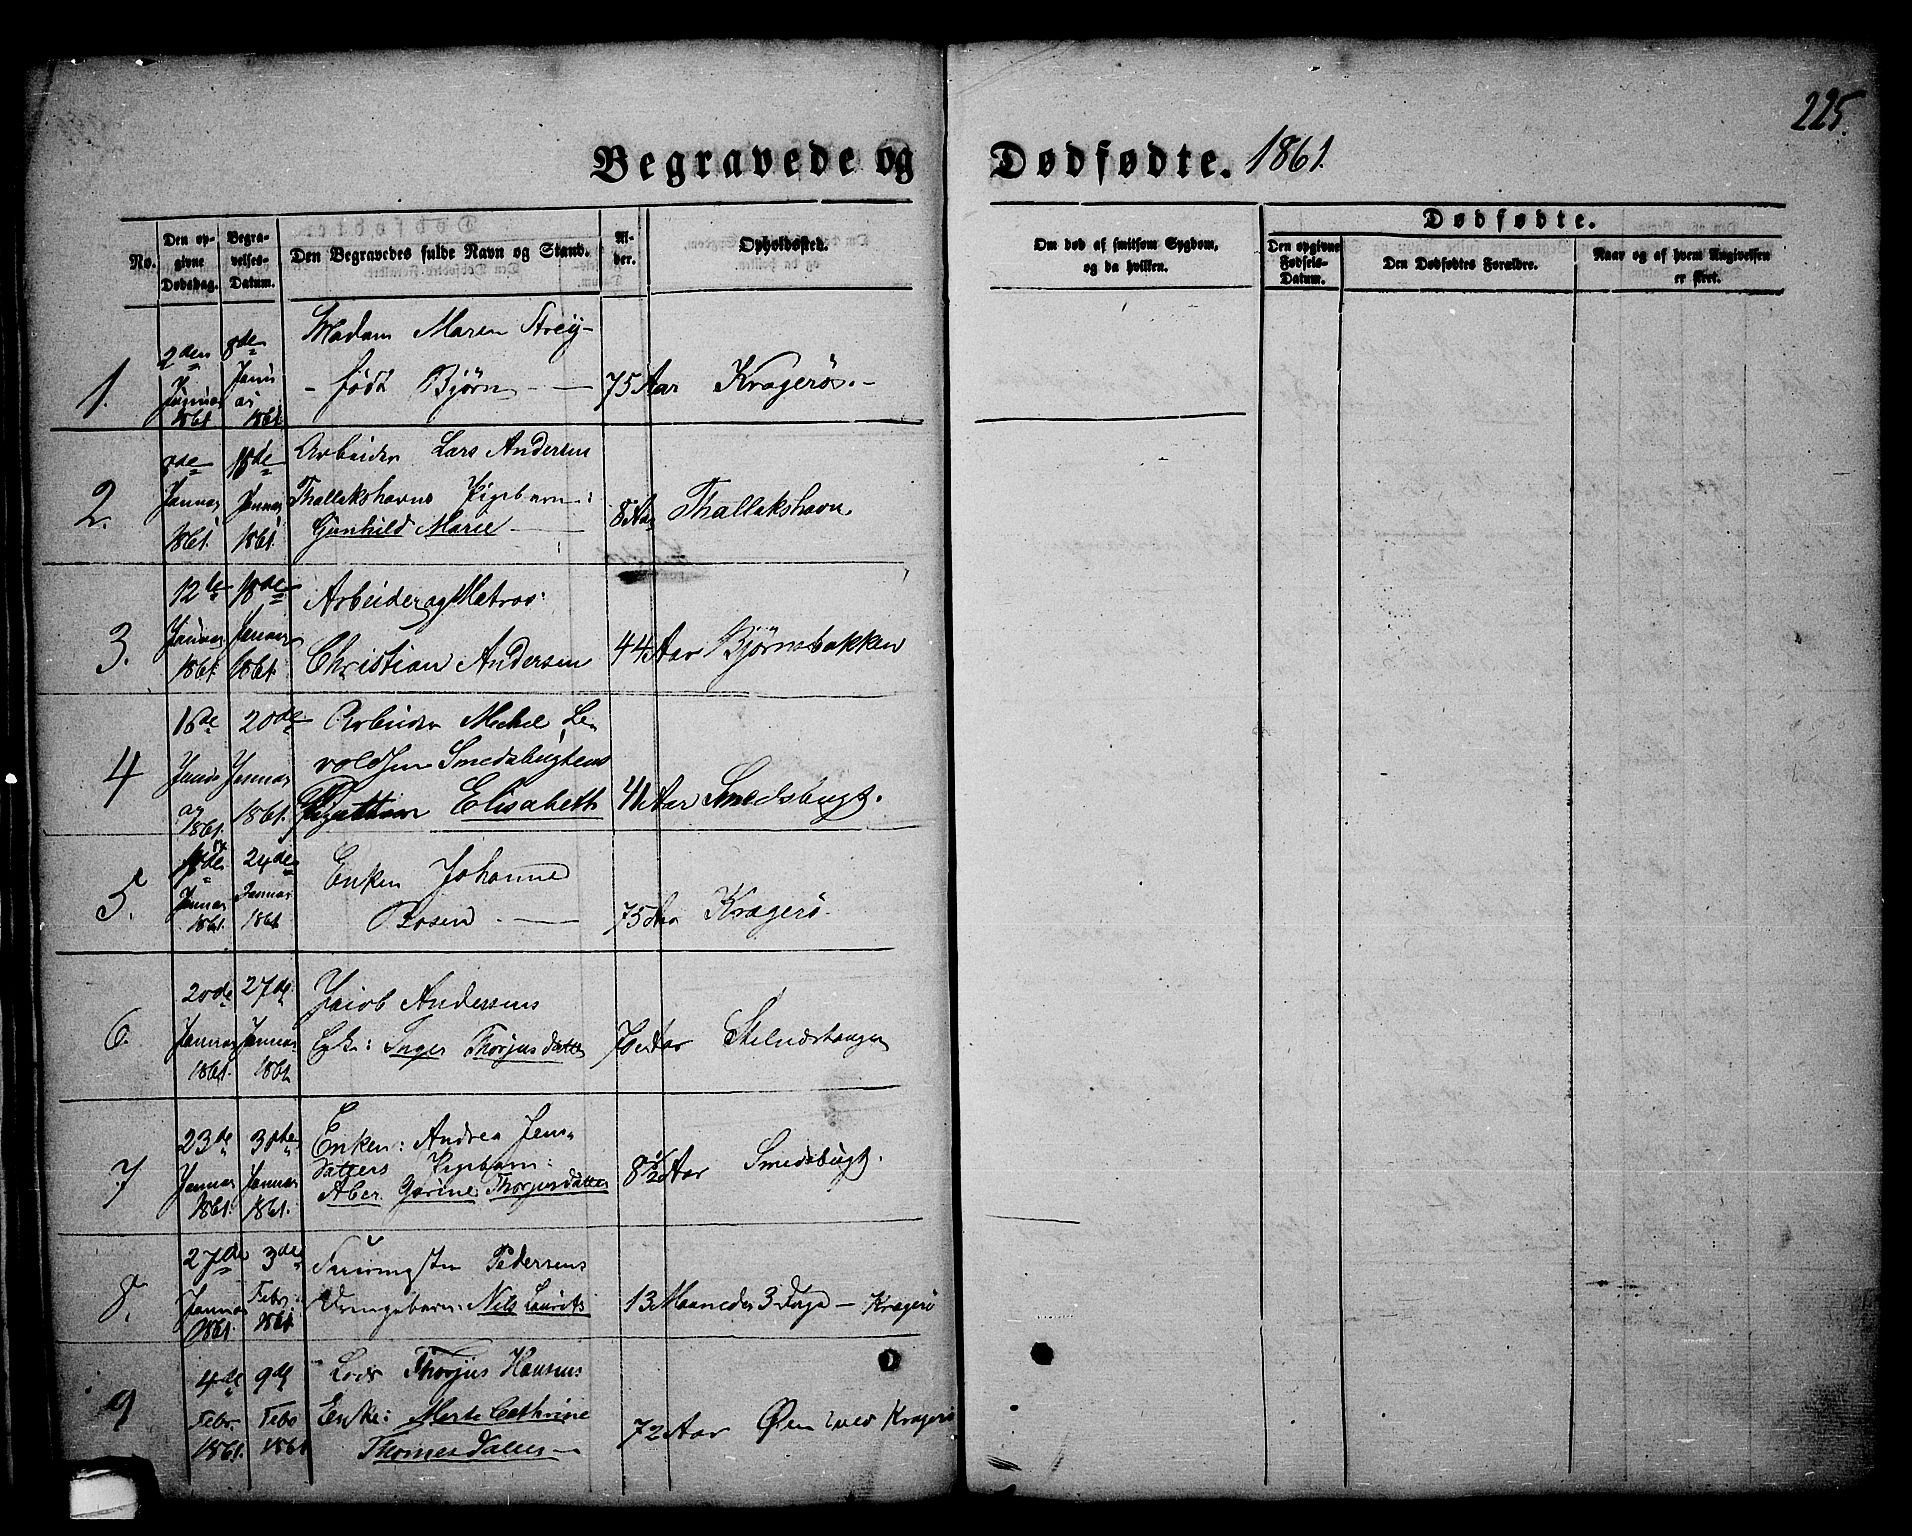 225.
Begravede og Dødfødte. 1861.
No.
Den opgivne Dødsdag.
Begravelses-Datum.
Den Begravedes fulde Navn og Stand.
Alder.
Opholdssted.
Om død af smitsom Sygdom, og da hvilken.
Dødfødte.
Den opgivne Fødsels-Datum.
Den Dødfødtes Forældre.
Naar og af hvem Angivelsen er skeet.
1. 2den Januar 1861 8de Januar 1861
Madam Maren
født Bjørn
75 Aar Kragerø.
2. 8de Januar 1861. 18de Januar 1861.
Arbeider Lars Andersen
Thallakshavns Pigebarn:
Gunhild Marie
8 Aar Thallakshavn
3. 12te Januar 1861. 18de Januar 1861.
Arbeider og Matros:
Christian Andersen
44 Aar Bjørnsbakken
4 16de Januar 1861. 20de Januar 1861.
Arbeider Michel
Smedsbugtens
Elisabeth
Aar Smedsbugt.
5. Januar 1861. 24de Januar 1861
Enken Johanne
Bosen
75 Aar Kragerø.
6. 20de Januar 1861. 27de Januar 1861
Jacob Andersens
Inger Thorjusdatter
Aar
7 23de Januar 1861. 30te Januar 1861.
Enken: Andrea Jens-
datters Pigebarn:
Aber. Gurine Thorjusdatter
8 1/2 Aar Smedsbugt.
8. 27de Januar 1861. 3de Febr. 1861
Pedersens
Drengebarn: Nils Laurits
13 Maaneder 3 Dage — Kragerø
9 4de Febr. 1861. 9de Febr 1861
Lods Thorjus Hansens
Enke: Merte Cathrine
Thomesdatter
72 Aar Øen ved Kragerø